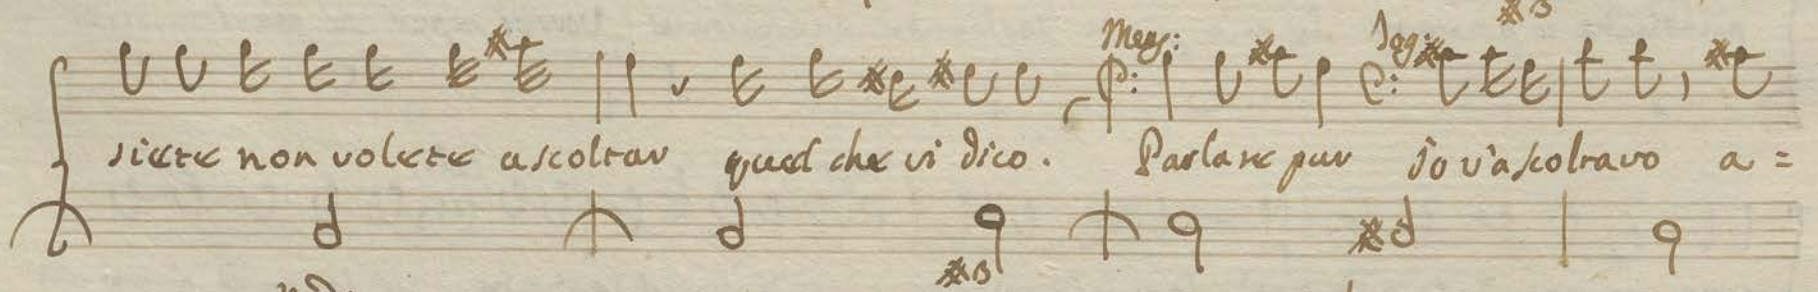 Meng:
siete non volete ascoltar quel che vi dico. Parlate pur io v'ascoltarò a=